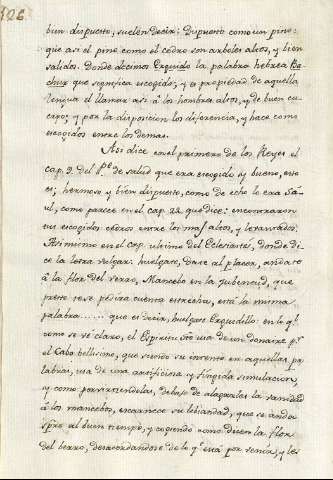 126.
bien dispuesto, suelen decir: Dispuesto como un pino:
que asi el pino como el cedro son arboles altos, y bien
salidos. Donde decimos Erguido la palabra hebrea Ba-
chur que significa escogido, y es propiedad de aquella
lengua el llamar asi à los hombres altos, y de buen cu-
erpo; y por la disposicion los diferencia, y hace como
escogidos entre los demas.
Asi dice en el primero de los Reyes el
cap. 9. del de Saul que era escogido y bueno, esto
es; hermoso y bien dispuesto, como de echo lo era Sa-
ul, como parece en el cap. que dice:
sus escogidos cedros entre los mas altos, y levantados.
Asimismo en el cap. ultimo del Eclesiastes, donde di-
ce la letra vulgar: huelgate, date al placer, andate
â la flor del verso, Mancebo en tu jubentud, que
presto se te pedira cuenta estrecha, està la misma
palabra...... que es decir, huelgate Erguidillo: en lo ql
como se vé claro, el Espiritu Sto usa de un donaire pr
el Cabo bellisimo, que siendo su intento en aquellas pa-
labras, usa de una artificiosa y fingida simulacion,
y como debajo de la vanidad
à los mancebos, escarnece su libiandad, que se anda
spre al buen tiempo, y cogiendo como dicen la flor
del berro, desacordandose de lo qe está por venir, y les